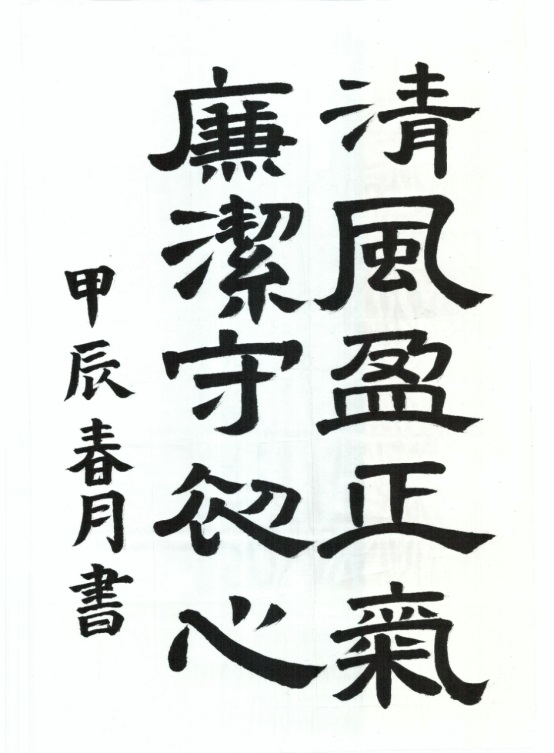 清風盈正氣
廉潔守初心
甲辰春月書